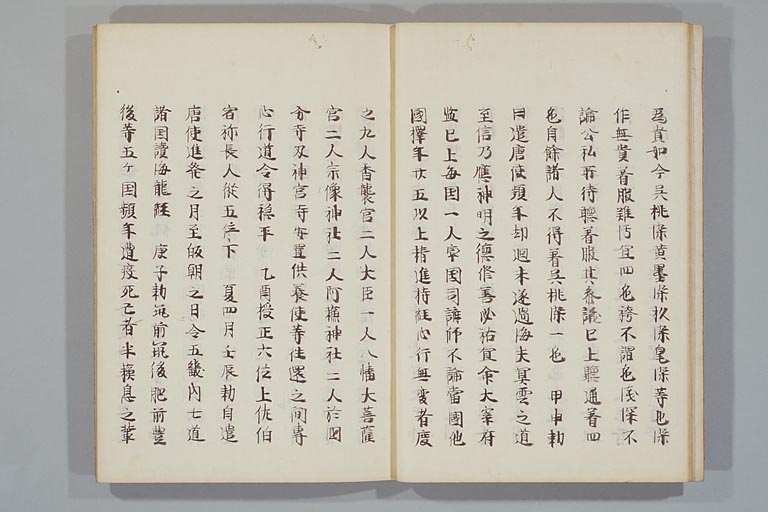 為貴如今呉桃染黄墨染杉染皂染等也染
作無貴着服雖仍宜四色袴不謂色浅深不
論公私所待聴着服其参議已上聴通着四
色自餘諸人不得著呉桃染一色 甲申勅
曰遣唐使頻年却迴未遂過海夫冥雲之道
至信乃應神明之徳修善必祐宜令大宰府
監已上毎国一人率国司講師不論當國他
國擇年廿五以上精進持経心行無変者度
之九人香襲宮二人大臣一人八幡大菩薩
宮二人宗像神社二人阿蘇神社二人於国
分寺及神宮寺安置供養使等往還之間専
心行道令得穏平 乙酉授正六位上佐伯
宿祢長人従五位下 夏四月壬辰勅自遣
唐使進発之月至皈朝之日令五畿内七道
諸国讀海龍経 庚子勅筑前筑後肥前豊
後等五ケ国頻年遭疫死亡者半損息之輩